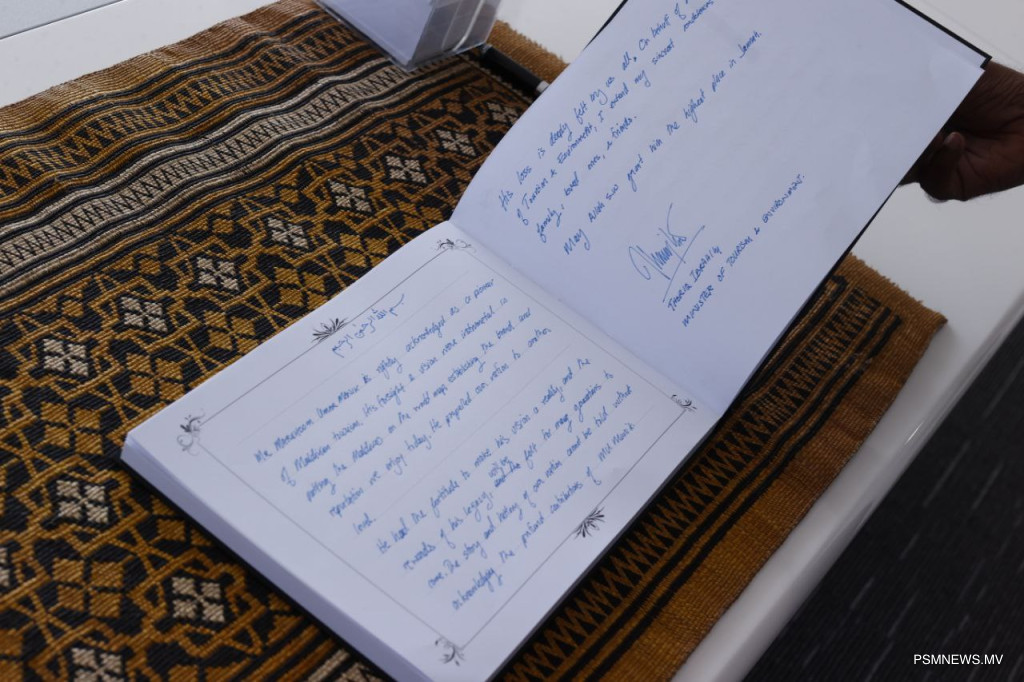 بسم الله الرحمن الرحيم
Mr. Mohamed Umar Manik is rightly acknowledged as a pioneer
of Maldivian tourism. His foresight & vision were instrumental in
putting the Maldives on the world map, establishing the brand and
reputation we enjoy today. He propelled our nation to another
level.
He had the fortitude to make his vision a reality and the
rewards of his legacy will be felt for many generations to
come. The story and history of our nation cannot be told without
acknowledging the profound contributions of Mr. Manik.
His loss is deeply felt by us all. On behalf of
of Tourism & Environment, I extend my sincerest condolences
family, loved ones, & friends.
May Allah swt grant him the highest place in Jannah.
THORIQ IBRAHIM
MINISTER OF TOURISM & ENVIRONMENT.
PSMNEWS.MV